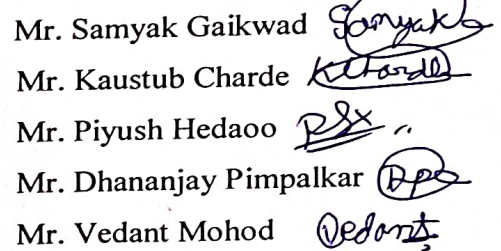 Mr. Samyak Gaikwad Samyak
Mr. Kaustub Charde KCharde
Mr. Piyush Hedaoo
Mr. Dhananjay Pimpalkar
Mr. Vedant Mohod Vedant